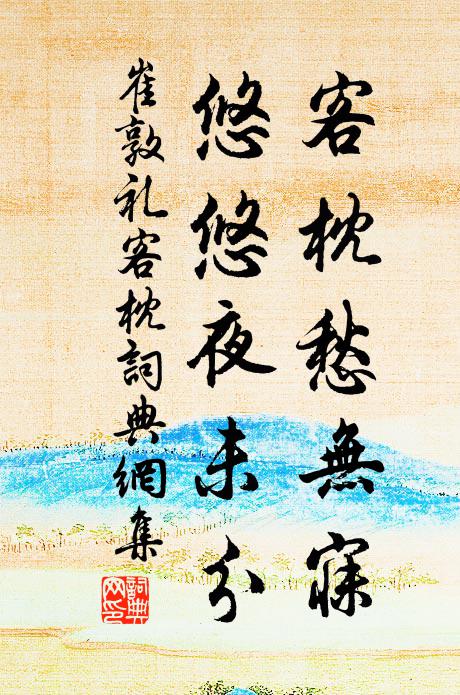 客枕愁無寐
悠悠夜未分
崔敦礼客枕詞典網集